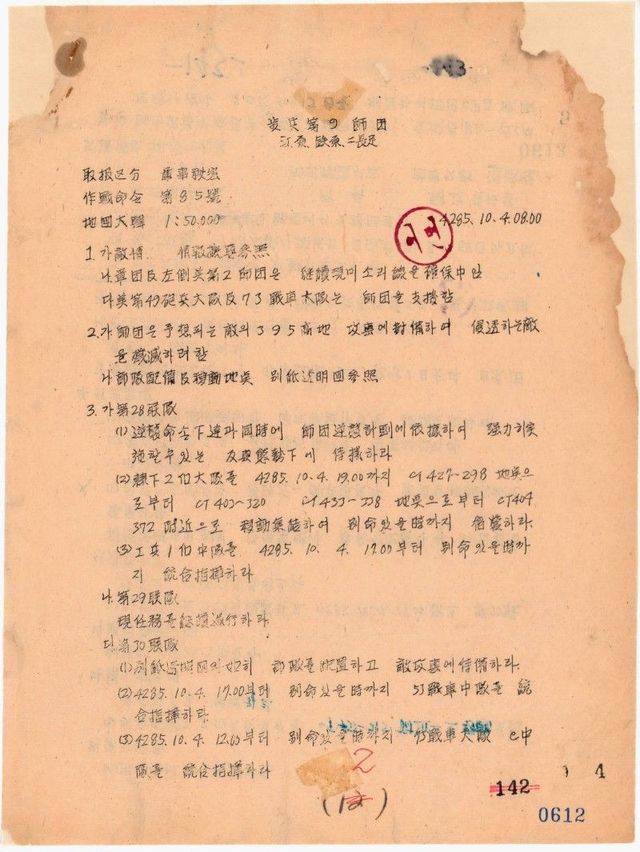 步兵第9師団
江原、鉄原、二長足
取扱区分 軍事秘密
作戦命令 第85號
地図大韓 1:50.000
4285.10.4.08.00
1.가敵情 情報機要參照
나軍団及左側美第2師団은 継續現미소리線을 確保中임
다美第49砲兵大隊及73戰車大隊는 師団을 支援함
2.가師団은 予想되는敵의 395高地 攻裏에 對備하여 侵透하는敵
을 殲滅하려함
나部隊配備及移動地点 別紙透明図參照
3.가第28聯隊
(1)逆襲命令下達과同時에 師団逆襲計劃에依據하여 强力히実
施할수있는 態勢下에 待機하라
(2)隷下2個大隊를 4285.10.4.19.00까지 CT427-298 地点으
로부터 CT403-320 433-338 地点으로부터 CT404
372 附近으로 移動集結하여 別命있을時까지 하라.
(3)工兵1個中隊를 4285.10.4.17.00부터 別命있을時까
지 統合指揮하라
나.第29聯隊
現任務를継續遂行하라
다.第30聯隊
(1)別紙透明図의如히 部隊를配置하고 敵攻裏에待備하라.
(2)4285.10.4.19.00부터 別命있을時까지 53戰車中隊를 統
合指揮하라
(3)4285.10.4.12.00부터 別命있을時까지 73戰車大隊 C中
隊를 統合指揮하라
2
(12)
142
4
0612